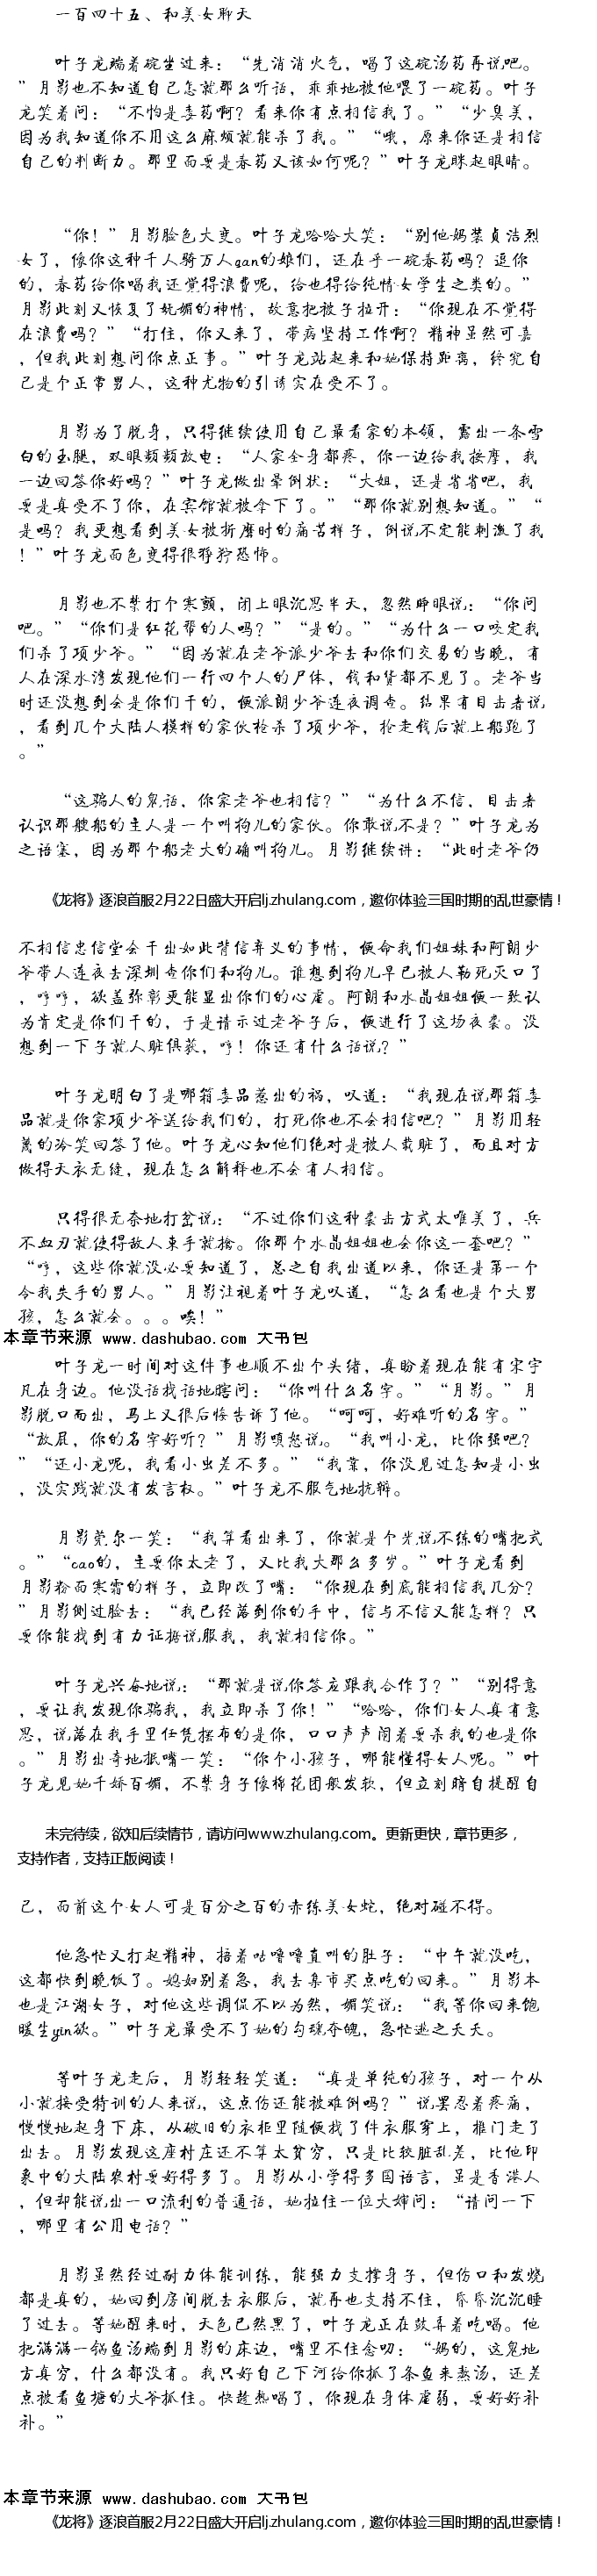 一百四十五、和美女聊天
叶子龙端着碗坐过来：“先消消火气，喝了这碗汤药再说吧。
”月影也不知道自己怎就那么听话，乖乖地被他喂了一碗药。叶子
龙笑着问：“不怕是毒药啊？看来你有点相信我了。”“少臭美，
因为我知道你不用这么麻烦就能杀了我。”“哦，原来你还是相信
自己的判断力。那里面要是春药又该如何呢？”叶子龙眯起眼睛。
“你！”月影脸色大变。叶子龙哈哈大笑：“别他妈装贞洁烈
女了，像你这种千人骑万人qan的娘们，还在乎一碗春药吗？逗你
的，春药给你喝我还觉得浪费呢，给也得给纯情女学生之类的。”
月影此刻又恢复了妩媚的神情，故意把被子拉开：“你现在不觉得
在浪费吗？”“打住，你又来了，带病坚持工作啊？精神虽然可嘉
，但我此刻想问你点正事。”叶子龙站起来和她保持距离，终究自
己是个正常男人，这种尤物的引诱实在受不了。
月影为了脱身，只得继续使用自己最看家的本领，露出一条雪
白的玉腿，双眼频频放电：“人家全身都疼，你一边给我按摩，我
一边回答你好吗？”叶子龙做出晕倒状：“大姐，还是省省吧，我
要是真受不了你，在宾馆就被拿下了。”“那你就别想知道。”“
是吗？我更想看到美女被折磨时的痛苦样子，倒说不定能刺激了我
！”叶子龙面色变得很狰狞恐怖。
月影也不禁打个寒颤，闭上眼沉思半天，忽然睁眼说：“你问
吧。”“你们是红花帮的人吗？”“是的。”“为什么一口咬定我
们杀了项少爷。”“因为就在老爷派少爷去和你们交易的当晚，有
人在深水湾发现他们一行四个人的尸体，钱和货都不见了。老爷当
时还没想到会是你们干的，便派朗少爷连夜调查。结果有目击者说
，看到几个大陆人模样的家伙枪杀了项少爷，抢走钱后就上船跑了
。”
“这骗人的鬼话，你家老爷也相信？”“为什么不信，目击者
认识那艘船的主人是一个叫狗儿的家伙。你敢说不是？”叶子龙为
之语塞，因为那个船老大的确叫狗儿。月影继续讲：“此时老爷仍
《龙将》逐浪首服2月22日盛大开启lj.zhulang.com，邀你体验三国时期的乱世豪情！
不相信忠信堂会干出如此背信弃义的事情，便命我们姐妹和阿朗少
爷带人连夜去深圳查你们和狗儿。谁想到狗儿早已被人勒死灭口了
，哼哼，欲盖弥彰更能显出你们的心虚。阿朗和水晶姐姐便一致认
为肯定是你们干的，于是请示过老爷子后，便进行了这场夜袭。没
想到一下子就人赃俱获，哼！你还有什么话说？”
叶子龙明白了是哪箱毒品惹出的祸，叹道：“我现在说那箱毒
品就是你家项少爷送给我们的，打死你也不会相信吧？”月影用轻
蔑的冷笑回答了他。叶子龙心知他们绝对是被人栽赃了，而且对方
做得天衣无缝，现在怎么解释也不会有人相信。
只得很无奈地打岔说：“不过你们这种袭击方式太唯美了，兵
不血刃就使得敌人束手就擒。你那个水晶姐姐也会你这一套吧？”
“哼，这些你就没必要知道了，总之自我出道以来，你还是第一个
令我失手的男人。”月影注视着叶子龙叹道，“怎么看也是个大男
孩，怎么就会。。。唉！”
本章节来源 www.dashubao.com 大书包
叶子龙一时间对这件事也顺不出个头绪，真盼着现在能有宋宇
凡在身边。他没话找话地瞎问：“你叫什么名字。”“月影。”月
影脱口而出，马上又很后悔告诉了他。“呵呵，好难听的名字。”
“放屁，你的名字好听？”月影嗔怒说。“我叫小龙，比你强吧？
”“还小龙呢，我看小虫差不多。”“我靠，你没见过怎知是小虫
，没实践就没有发言权。”叶子龙不服气地抗辩。
月影莞尔一笑：“我算看出来了，你就是个光说不练的嘴把式
。”“cao的，主要你太老了，又比我大那么多岁。”叶子龙看到
月影粉面寒霜的样子，立即改了嘴：“你现在到底能相信我几分？
”月影侧过脸去：“我已经落到你的手中，信与不信又能怎样？只
要你能找到有力证据说服我，我就相信你。”
叶子龙兴奋地说：“那就是说你答应跟我合作了？”“别得意
，要让我发现你骗我，我立即杀了你！”“哈哈，你们女人真有意
思，说落在我手里任凭摆布的是你，口口声声闹着要杀我的也是你
。”月影出奇地抿嘴一笑：“你个小孩子，哪能懂得女人呢。”叶
子龙见她千娇百媚，不禁身子像棉花团般发软，但立刻暗自提醒自
未完待续，欲知后续情节，请访问www.zhulang.com。更新更快，章节更多，
支持作者，支持正版阅读！
己，面前这个女人可是百分之百的赤练美女蛇，绝对碰不得。
他急忙又打起精神，捂着咕噜噜直叫的肚子：“中午就没吃，
这都快到晚饭了。媳妇别着急，我去集市买点吃的回来。”月影本
也是江湖女子，对他这些调侃不以为然，媚笑说：“我等你回来饱
暖生yin欲。”叶子龙最受不了她的勾魂夺魄，急忙逃之夭夭。
等叶子龙走后，月影轻轻笑道：“真是单纯的孩子，对一个从
小就接受特训的人来说，这点伤还能被难倒吗？”说罢忍着疼痛，
慢慢地起身下床，从破旧的衣柜里随便找了件衣服穿上，推门走了
出去。月影发现这座村庄还不算太贫穷，只是比较脏乱差，比他印
象中的大陆农村要好得多了。月影从小学得多国语言，虽是香港人
，但却能说出一口流利的普通话，她拉住一位大婶问：“请问一下
，哪里有公用电话？”
月影虽然经过耐力体能训练，能强力支撑身子，但伤口和发烧
都是真的，她回到房间脱去衣服后，就再也支持不住，昏昏沉沉睡
了过去。等她醒来时，天色已然黑了，叶子龙正在鼓弄着吃喝。他
把满满一锅鱼汤端到月影的床边，嘴里不住念叨：“妈的，这鬼地
方真穷，什么都没有。我只好自己下河给你抓了条鱼来熬汤，还差
点被看鱼塘的大爷抓住。快趁热喝了，你现在身体虚弱，要好好补
补。”
本章节来源 www.dashubao.com 大书包
《龙将》逐浪首服2月22日盛大开启lj.zhulang.com，邀你体验三国时期的乱世豪情！